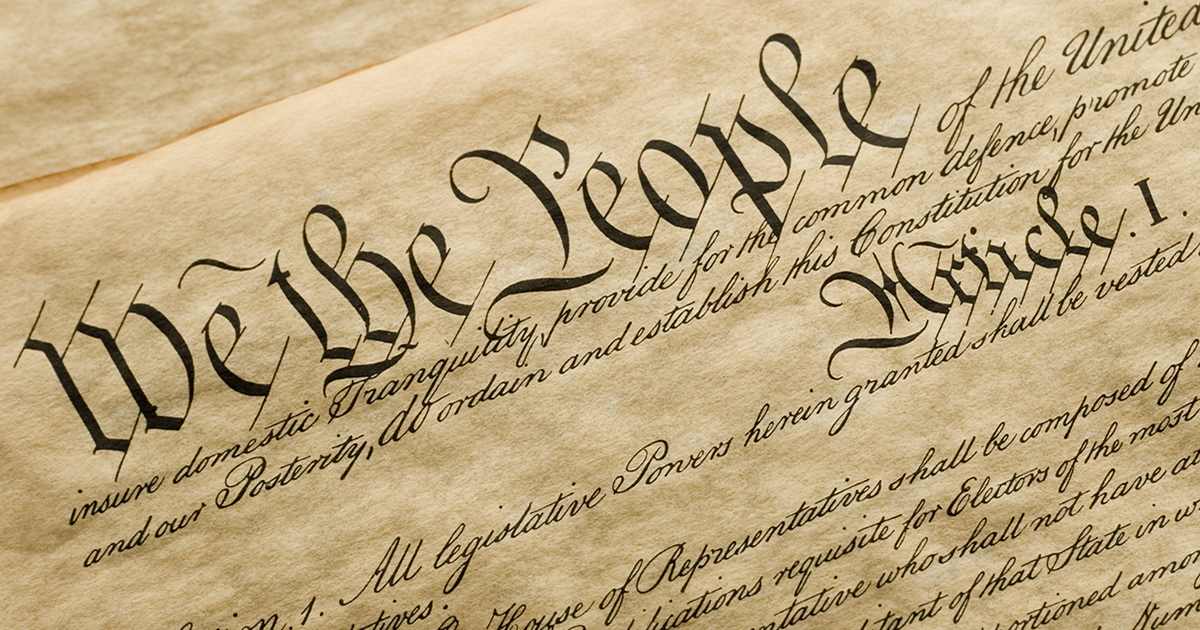 We the People of the United
insure domestic Tranquility, provide for the common defence, promote
and our Posterity, do ordain and establish this Constitution for the Un
Article. I.
n. 1. All legislative Powers herein granted shall be vested
tives.
House of Representatives shall be composed of
ications requisite for Electors of the most
ntative who shall not have at
tant of that State in w
ortioned amo
Num